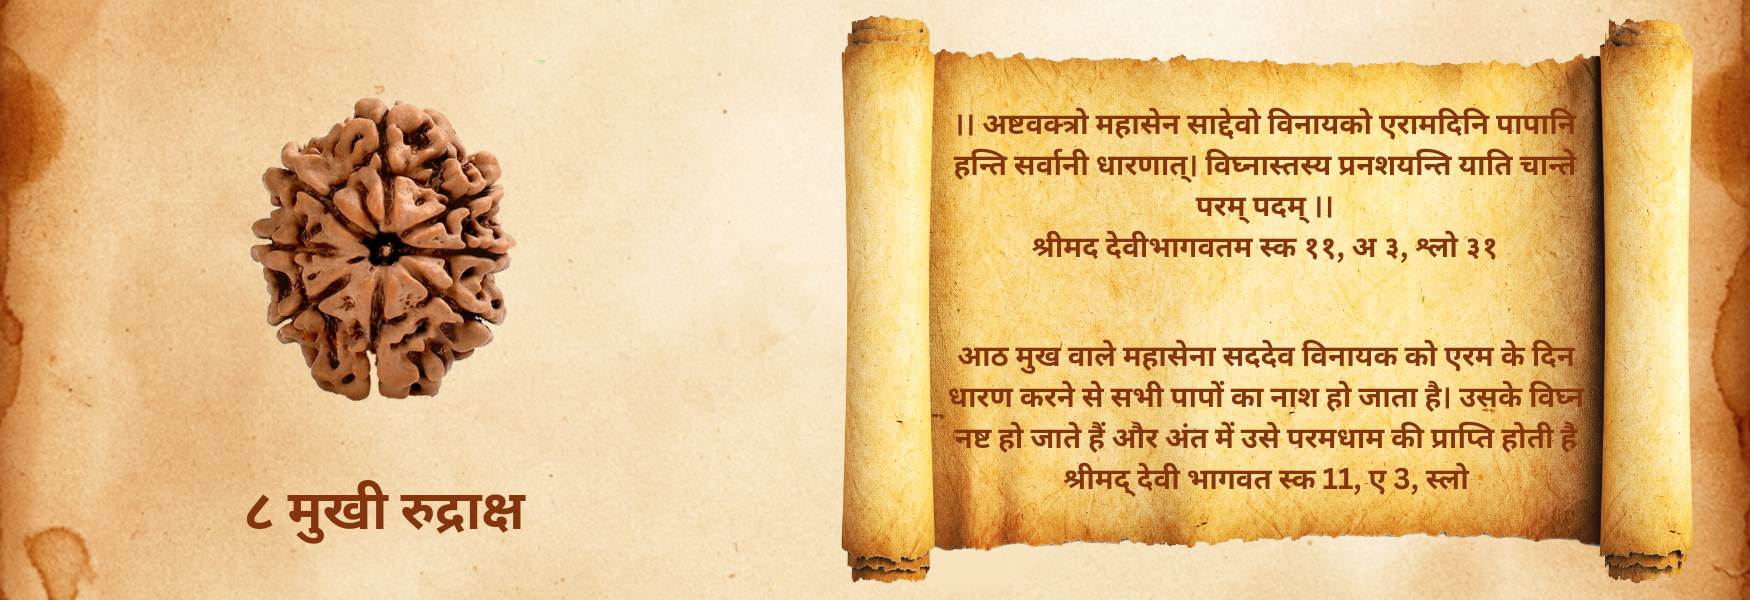 ८ मुखी रुद्राक्ष
।। अष्टवक्त्रो महासेन साद्देवो विनायको एरामदिनि पापानि
हन्ति सर्वानी धारणात्। विघ्नास्तस्य प्रनशयन्ति याति चान्ते
परम् पदम् ।।
श्रीमद देवीभागवतम स्क ११, अ ३, श्लो ३१
आठ मुख वाले महासेना सददेव विनायक को एरम के दिन
धारण करने से सभी पापों का नाश हो जाता है। उसके विघ्न
नष्ट हो जाते हैं और अंत में उसे परमधाम की प्राप्ति होती है
श्रीमद् देवी भागवत स्क 11, ए 3, स्लो